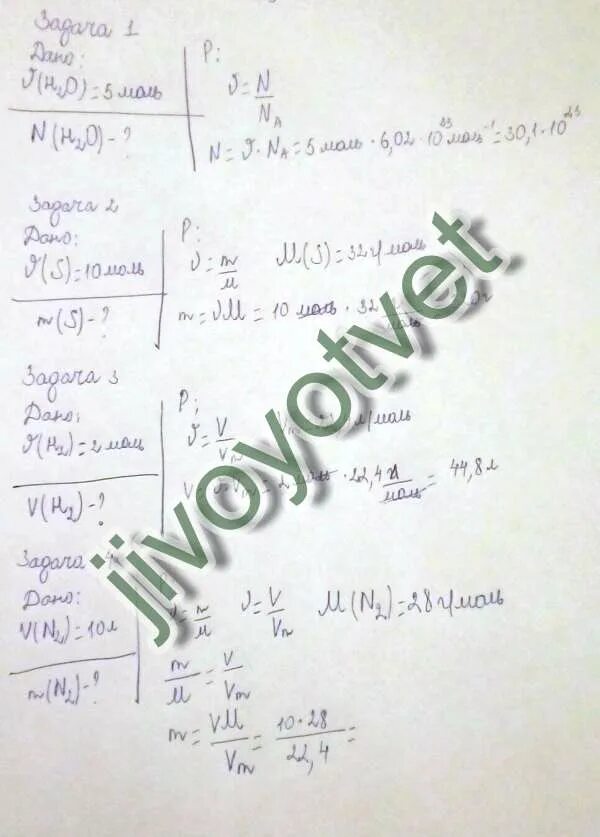 Задача 1
Дано:
ϑ(H₂O) = 5 моль
N(H₂O) - ?
Р:
ϑ = N/N_A
N = ϑ · N_A = 5 моль · 6,02 · 10²³ моль⁻¹ = 30,1 · 10²³
Задача 2
Дано:
ϑ(S) = 10 моль
m(S) - ?
Р:
ϑ = m/M M(S) = 32 г/моль
m = ϑM = 10 моль · 32
Задача 3
Дано:
ϑ(H₂) = 2 моль
V(H₂) - ?
Р:
ϑ = V/Vm л/моль
V = ϑVm = 2 моль · 22,4 л/моль = 44,8 л
Задача 4
Дано:
V(N₂) = 10 л
m(N₂) - ?
ϑ = m/M ϑ = V/Vm M(N₂) = 28 г/моль
m/M = V/Vm
m = VM/Vm = 10·28/22,4 =
jivoyotvet